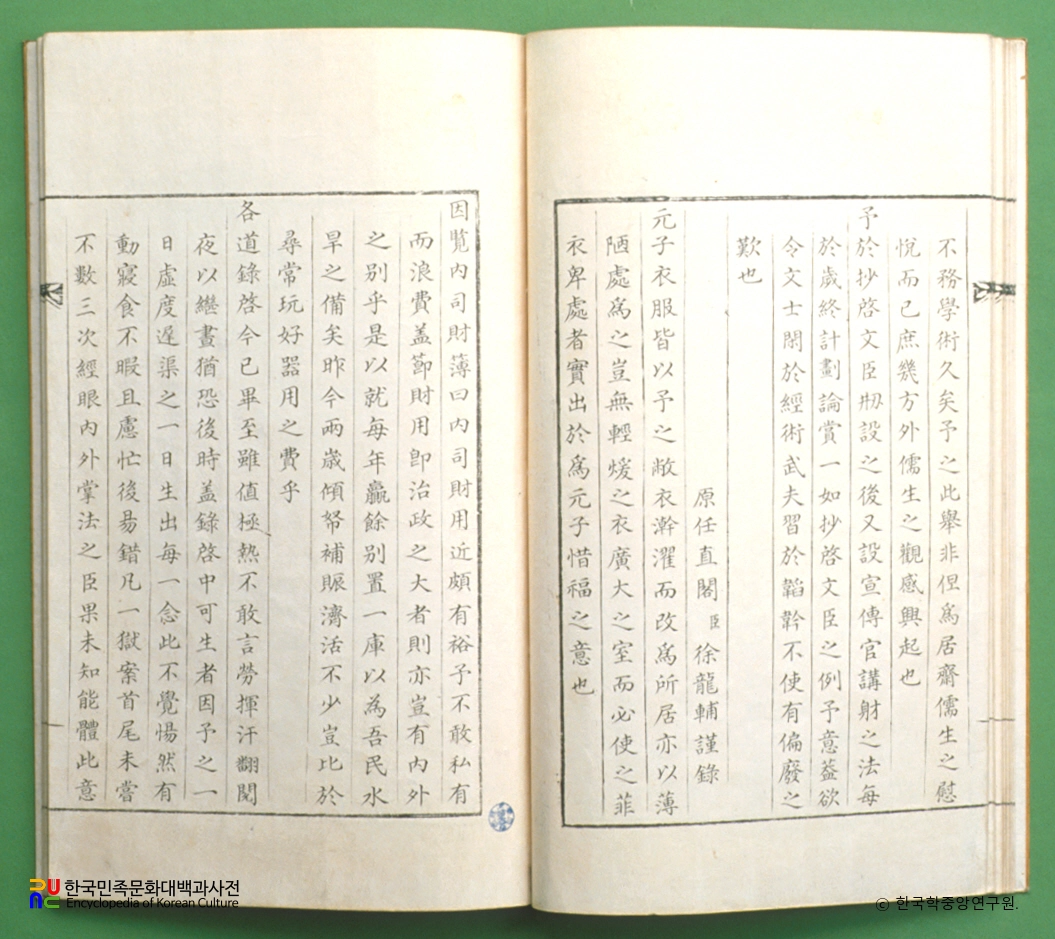 不務學術久矣予之此擧非但爲居齋儒生之慰
悅而已庶幾方外儒生之觀感興起也
予於抄啓文臣刱設之後又設宣傳官講射之法每
於歲終計劃論賞一如抄啓文臣之例予意葢欲
令文士閑於經術武夫習於韜鈐不使有偏廢之
歎也
原任直閣臣徐龍輔謹錄
元子衣服皆以予之敝衣澣濯而改爲所居亦以薄
陋處爲之豈無輕煖之衣廣大之室而必使之菲
衣卑處者實出於爲元子惜福之意也
因覧內司財簿曰內司財用近頗有裕予不敢私有
而浪費盖莭財用卽治政之大者則亦豈有內外
之別乎是以就每年贏餘別置一庫以為吾民水
旱之備矣昨今兩歲傾帑補賑濟活不少豈比於
尋常玩好器用之費乎
各道錄啓今已畢至雖值極熱不敢言勞揮汗翻閱
夜以繼晝猶恐後時盖錄啓中可生者因予之一
日虛度遲渠之一日生出每一念此不覺惕然有
動寢食不暇且慮忙後易錯凡一獄案首尾未嘗
不數三次經眼內外掌法之臣果未知能體此意
한국민족문화대백과사전
Encyclopedia of Korean Culture
© 한국학중앙연구원.